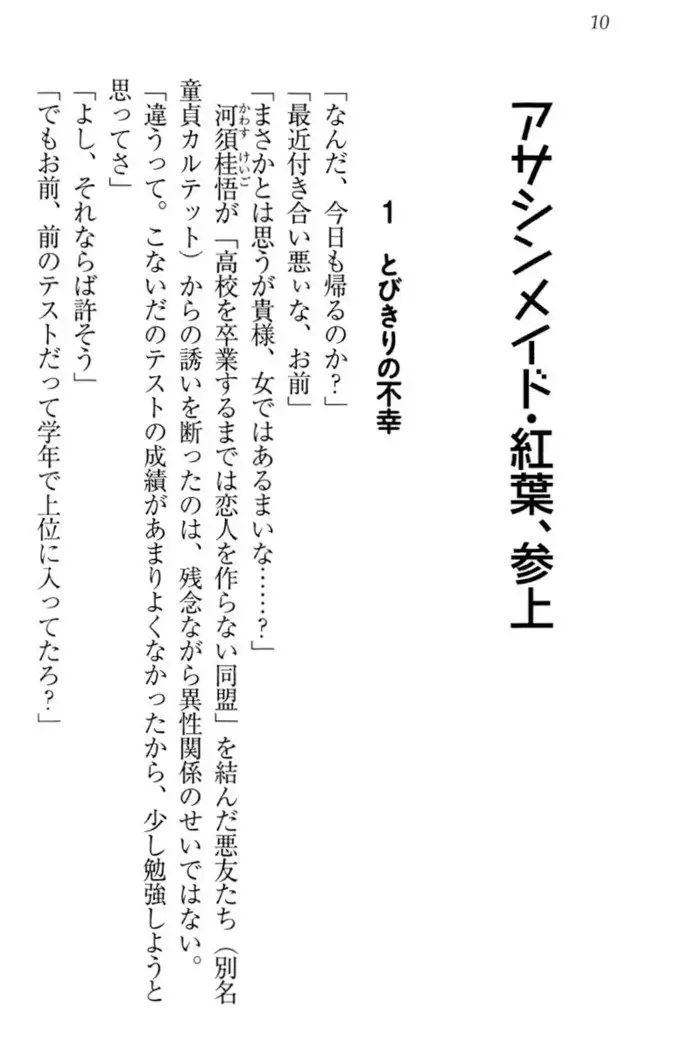 10
アサシンメイド・紅葉、参上
1 とびきりの不幸
「なんだ、今日も帰るのか？」
「最近付き合い悪ぃな、お前」
「まさかとは思うが貴様、女ではあるまいな……？」
河須桂悟が「高校を卒業するまでは恋人を作らない同盟」を結んだ悪友たち（別名
かわす けいご
童貞カルテット）からの誘いを断ったのは、残念ながら異性関係のせいではない。
「違うって。こないだのテストの成績があまりよくなかったから、少し勉強しようと
思ってさ」
「よし、それならば許そう」
「でもお前、前のテストだって学年で上位に入ってたろ？」